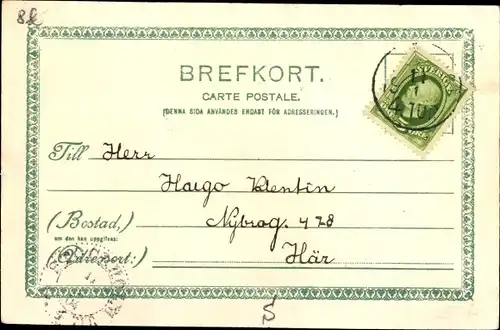 8k
BREFKORT.
CARTE POSTALE.
(DENNA SIDA ANVÄNDES ENDAST FÖR ADRESSERINGEN.)
SVERIGE
11
1
4 TUR
Till Herr
Hugo Klentin
(Bostad,) Nybrog. 478
om den kan uppgifvas:
(Adressort:) Här
S